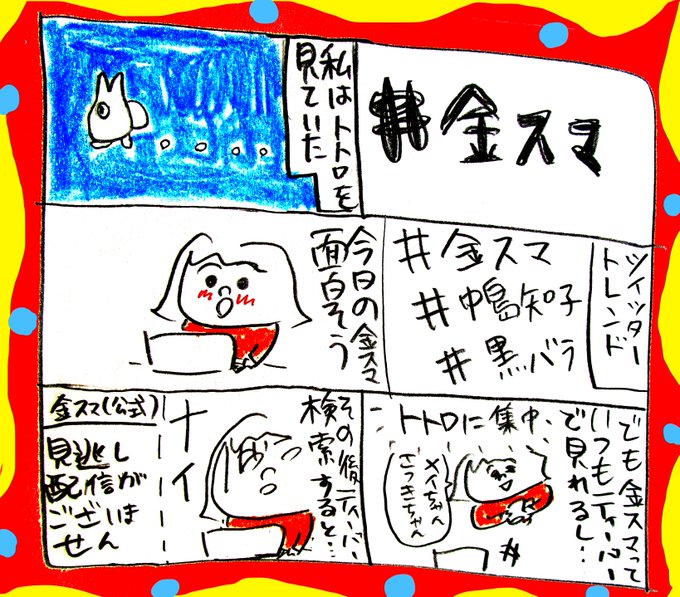 #金スマ
私はトトロを
見ていた
ツイッター
トレンド
#金スマ
#中島知子
#黒バラ
今日の金スマ
面白そう
でも金スマって
いつもティーバー
で見れるし…
トトロに集中、
メイちゃん
さつきちゃん
その後ティーバー
検索すると…
ナイ
金スマ(公式)
見逃し
配信が
ございま
せん